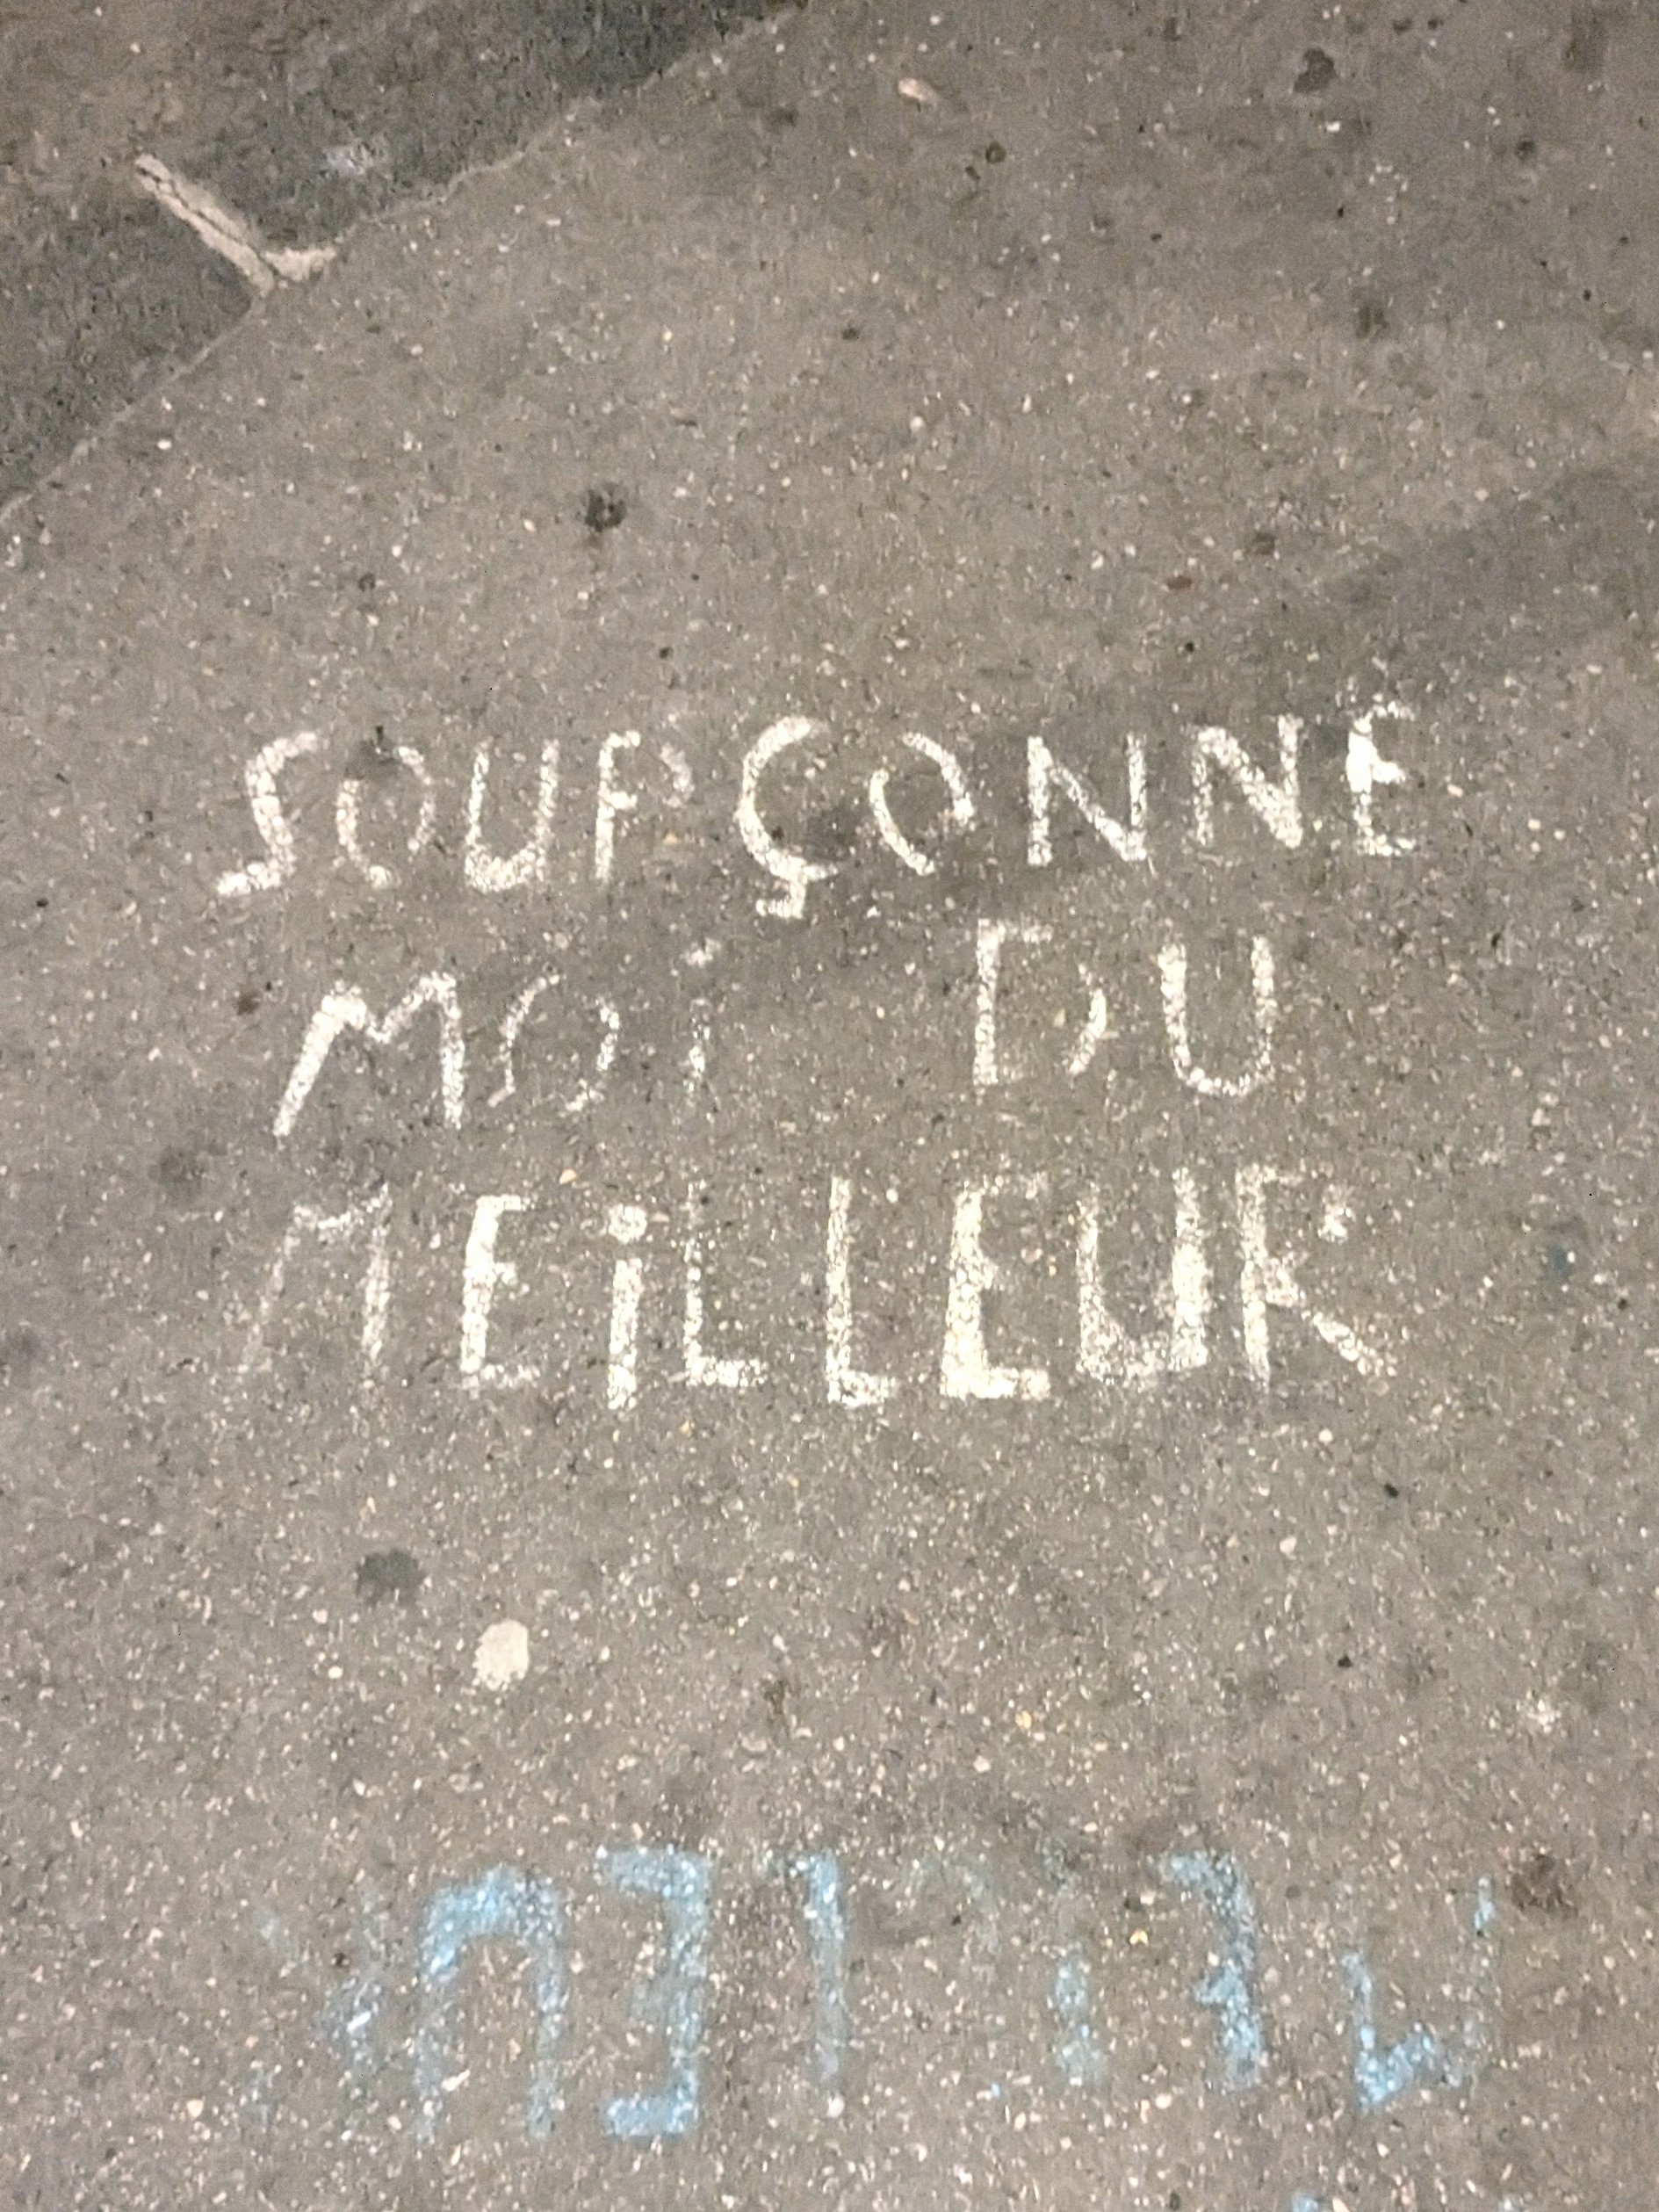 SOUPÇONNE
MOi DU
MEiLLEUR
MEILLEUR